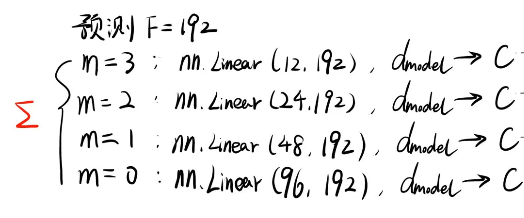 预测 F=192
m=3 : nn.Linear (12, 192), dmodel→ C
m=2 : nn.Linear (24,192), dmodel→ C
Σ
m=1 : nn.Linear (48, 192), dmodel→ C
m=0 : nn.Linear (96, 192), dmodel→ C